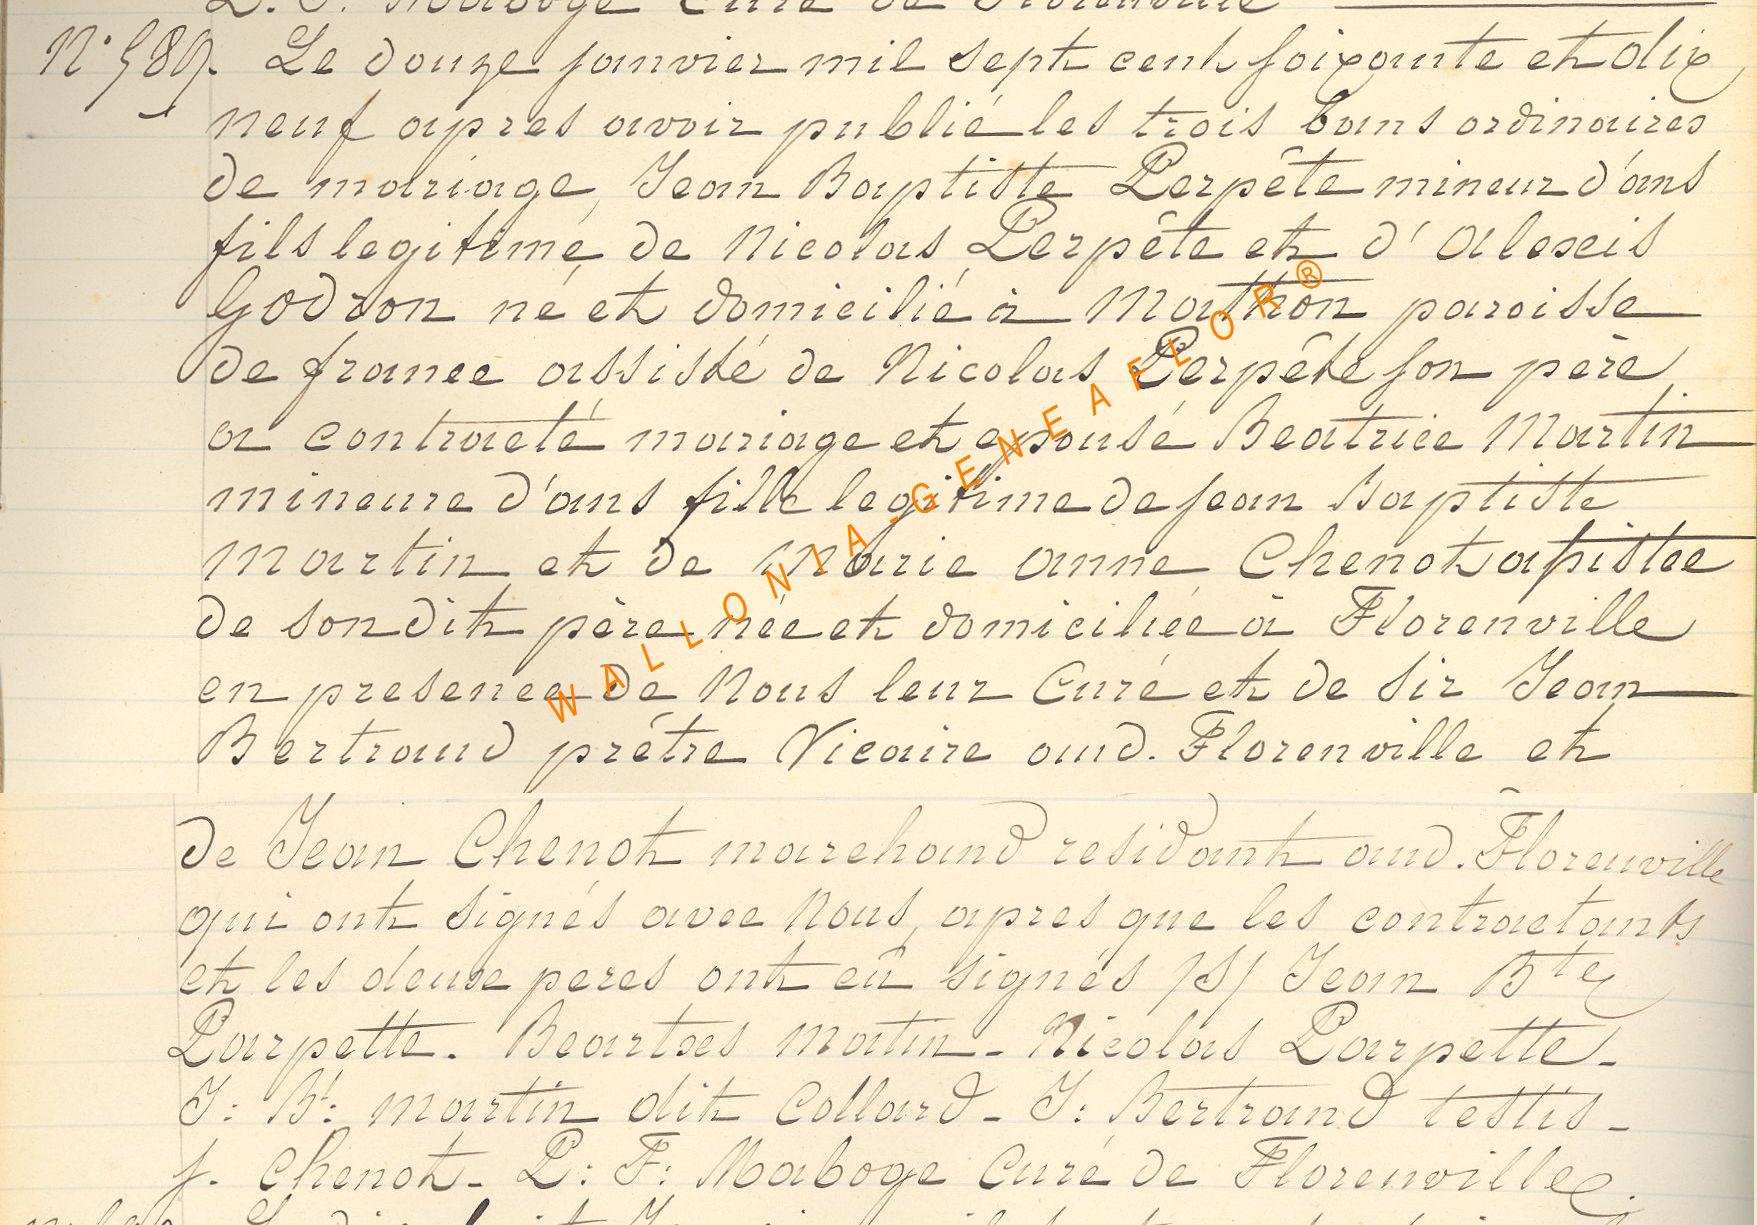 L. F. Maboge Curé de Florenville
N° 589. Le douze janvier mil sept cent soixante et dix
neuf apres avoir publié les trois bans ordinaires
de mariage, Jean Baptiste Perpête mineur d'ans
fils legitime de Nicolas Perpête et d'Alexis
Godron né et domicilié à Mathon paroisse
de france assisté de Nicolas Perpête son père
a contracté mariage et epousé Beatrice Martin
mineure d'ans fille legitime de jean Baptiste
Martin et de Marie anne Chenot apistee
de son dit père née et domiciliée à Florenville
en presence de Nous leur Curé et de Sir Jean
Bertrand prêtre Vicaire aud. Florenville et
de Jean Chenot marchand residant aud. Florenville
qui ont signés avec Nous, apres que les contractants
et les deux peres ont eû signés /S/ Jean Bte
Parpette. Beartses Matin - Nicolas Parpette -
J: Bt: Martin dit Collard - J: Bertrand testis -
j. Chenot - P: F: Maboge Curé de Florenville.
WALLONIA-GENEAFLOR®